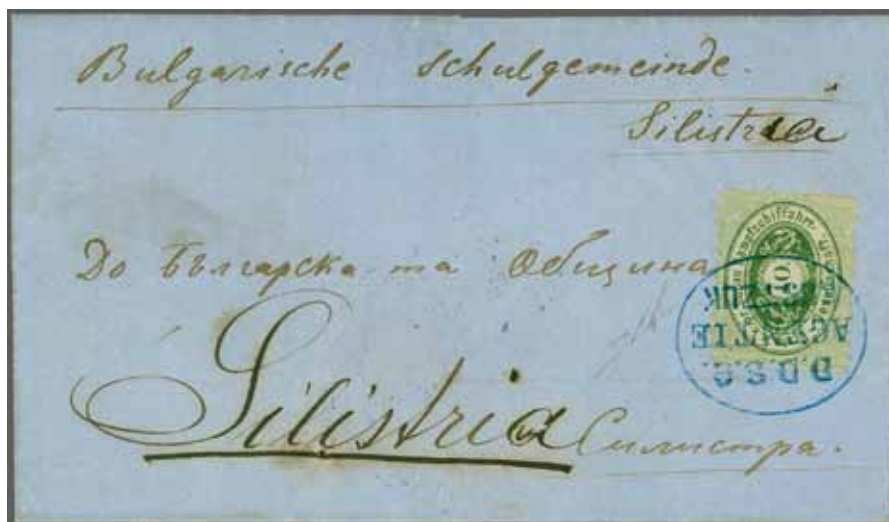 Bulgarische Schulgemeinde.
Silistria
До Българска та Община
Silistria Силистра.
10
D.D.S.G.
AGENTIE